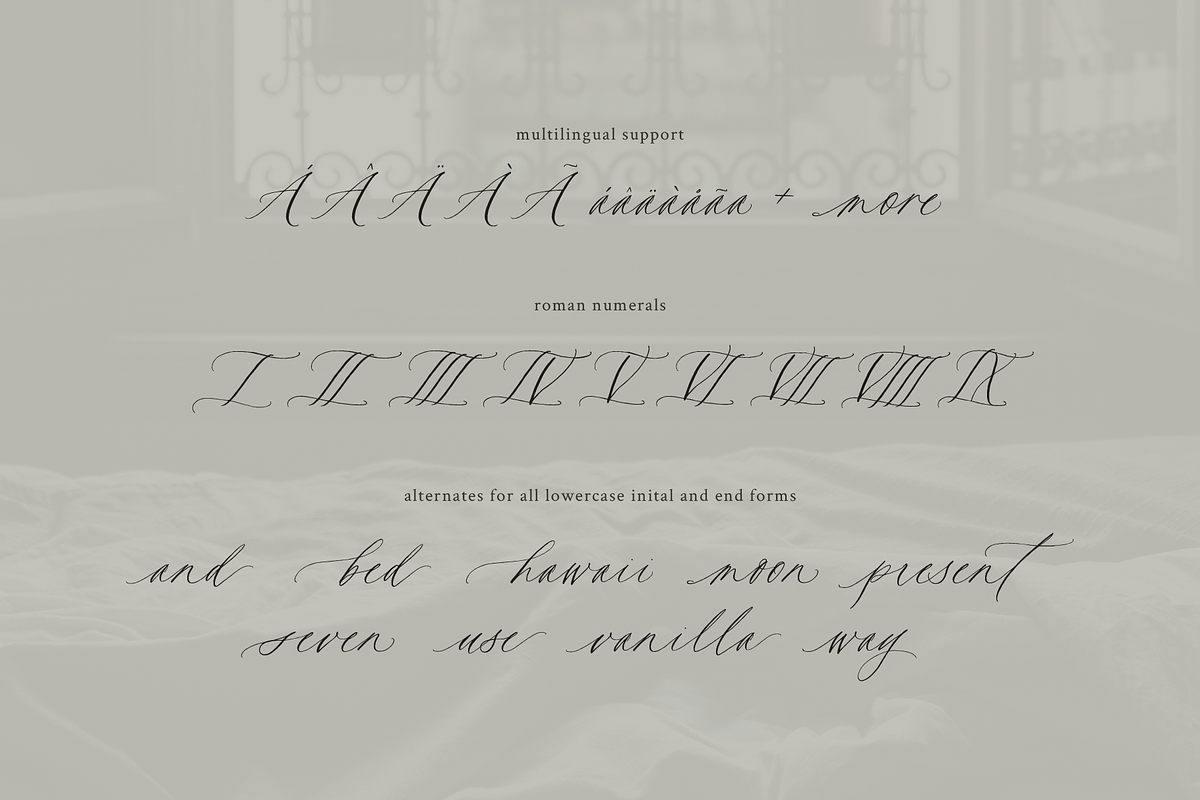 multilingual support
Á Â Ä À Ã áâäàåãa + more
roman numerals
I II III IV V VI VII VIII IX
alternates for all lowercase inital and end forms
and bed hawaii moon present
seven use vanilla way